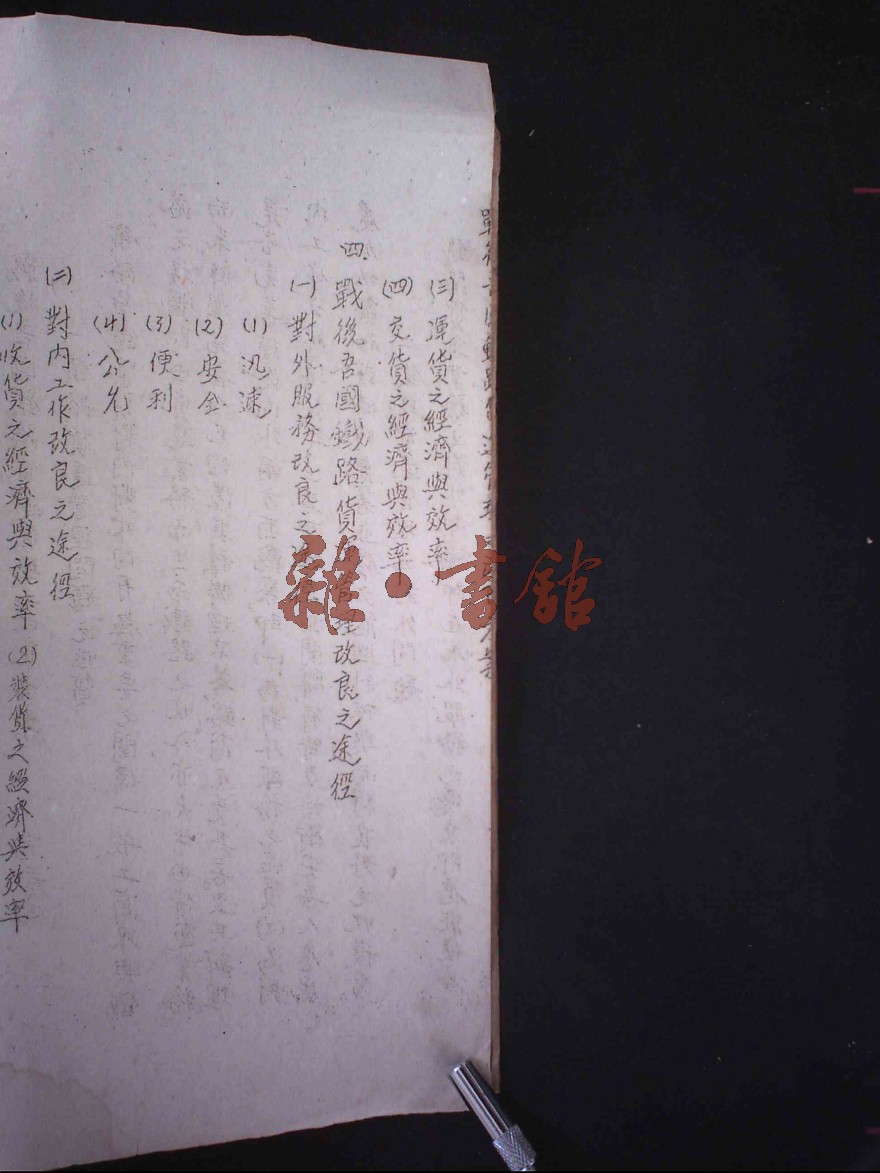 (三) 運貨之經濟與效率
(四) 交貨之經濟與效率
四. 戰後吾國鐵路貨運管理改良之途徑
(一) 對外服務改良之
(1) 汛速
(2) 安全
(3) 便利
(4) 公允
(二) 對内工作改良之途徑
(1) 收貨之經濟與效率 (2) 裝貨之經濟與效率
雜·書館